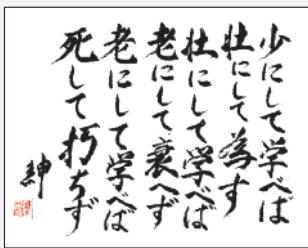 少にして学べば
壮にして為す
壮にして学べば
老にして衰へず
老にして学べば
死して朽ちず
紳